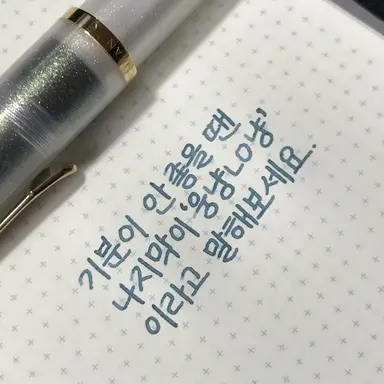 기분이 안 좋을 땐
나지막이 웅냥ㄴㅇ냥'
이라고 말해보세요.